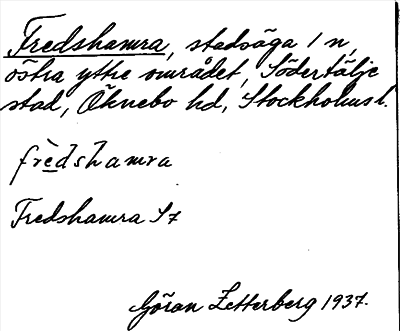 Fredshamra, stadsäga 1 n,
östra yttre området, Södertälje
stad, Öknebo hd, Stockholms l.
frèdshamra
Fredshamra 57
Göran Zetterberg 1937.